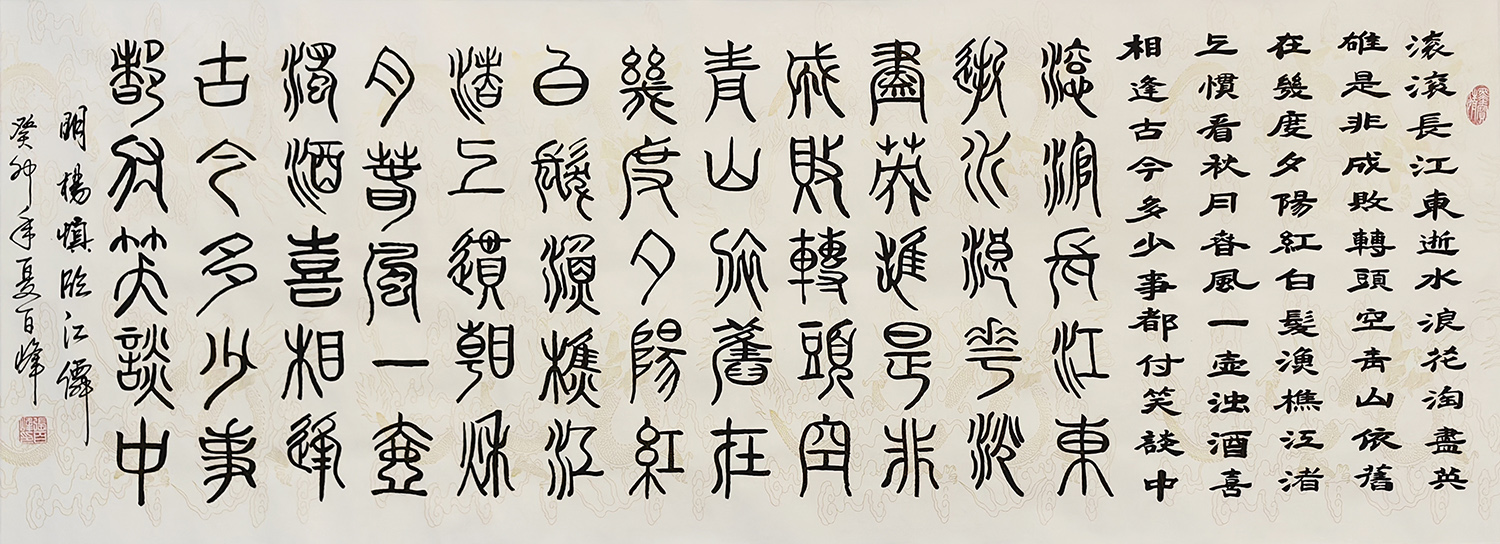 滚滚長江東逝水浪花淘盡英
雄是非成敗轉頭空青山依舊
在幾度夕陽紅白髮漁樵江渚
上慣看秋月春風一壺浊酒喜
相逢古今多少事都付笑談中
滚滚長江東
逝水浪花淘
盡英雄是非
成敗轉頭空
青山依舊在
幾度夕陽紅
白髮漁樵江
渚上慣看秋
月春風一壺
濁酒喜相逢
古今多少事
都付笑談中
明楊慎臨江僊
癸卯年夏百峰